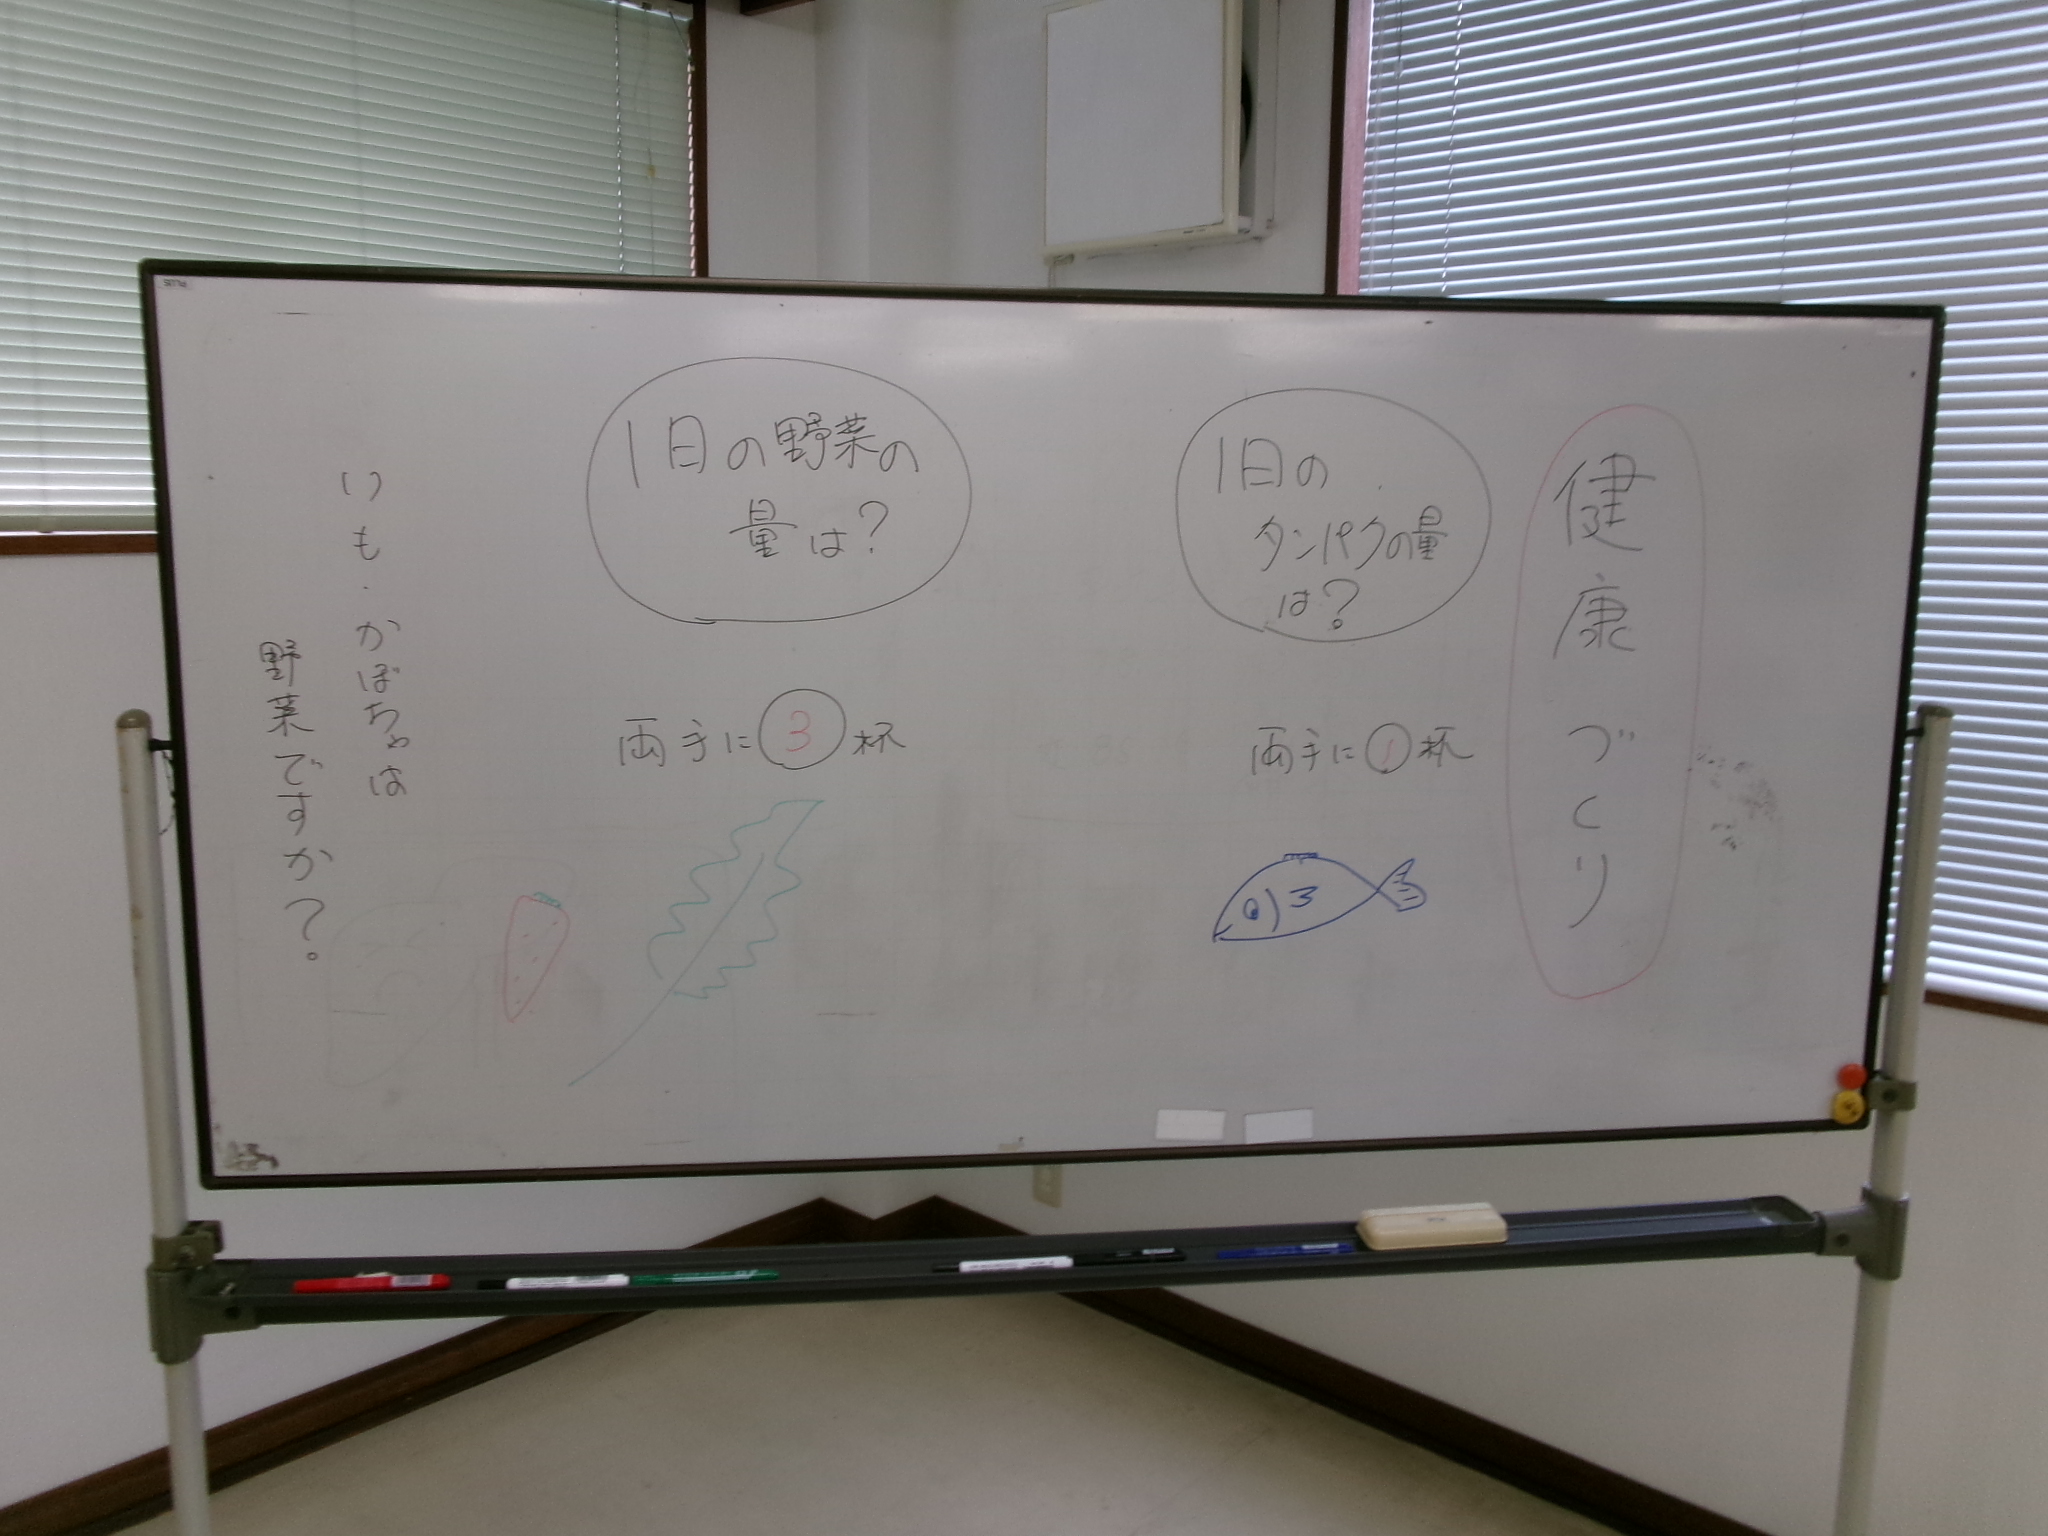 健康づくり
1日の
タンパクの量
は?
両手に①杯
1日の野菜の
量は?
両手に③杯
いも・かぼちゃは
野菜ですか?
PLUS